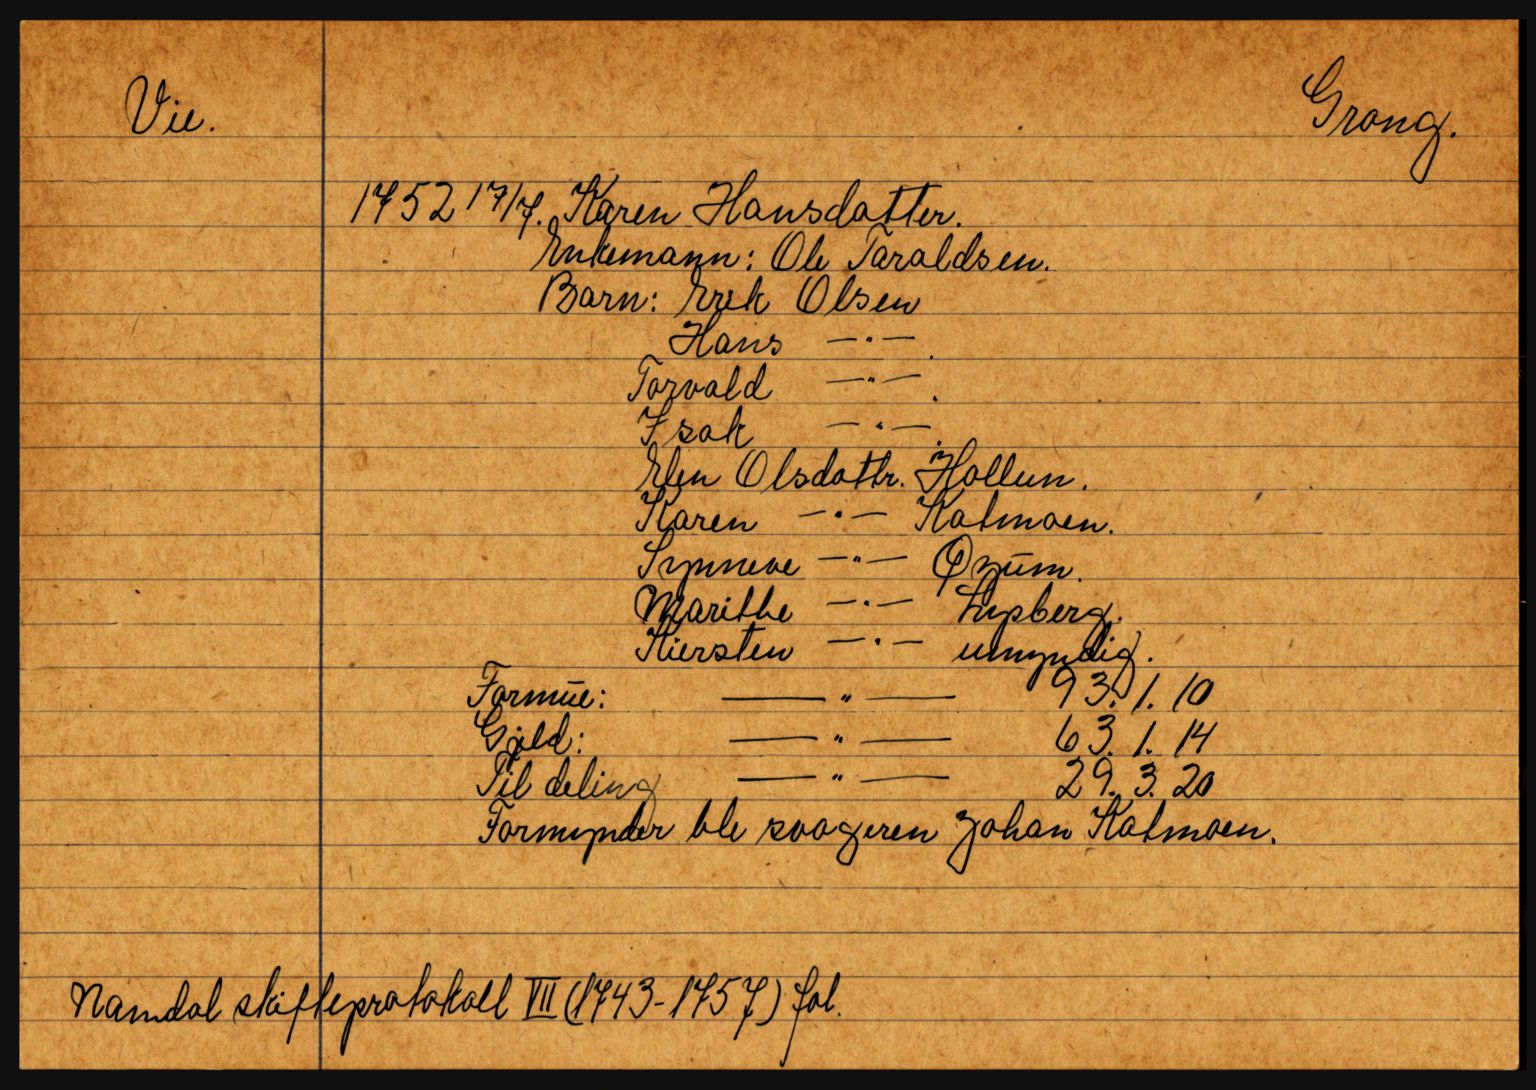 Vie. Grong.
1752 17/7. Karen Hansdatter.
Enkemann: Ole Taraldsen.
Barn: Erek Olsen
Hans —"—.
Torvald —"—.
Isak —"—.
Elen Olsdattr. Hollun.
Karen —"— Katmoen.
Synneve —"— Øzum.
Marithe —"— Lepberg.
Kiersten —"— umyndig.
Formue: —"— 93. 1. 10
Gjeld: —"— 63. 1. 14
Til deling —"— 29. 3. 20
Formynder ble svogeren Johan Katmoen.
Namdal skifteprotokoll VII (1743-1757) fol.